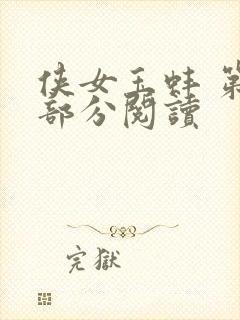 侠女玉蚌 第
部分阅讀
完獄